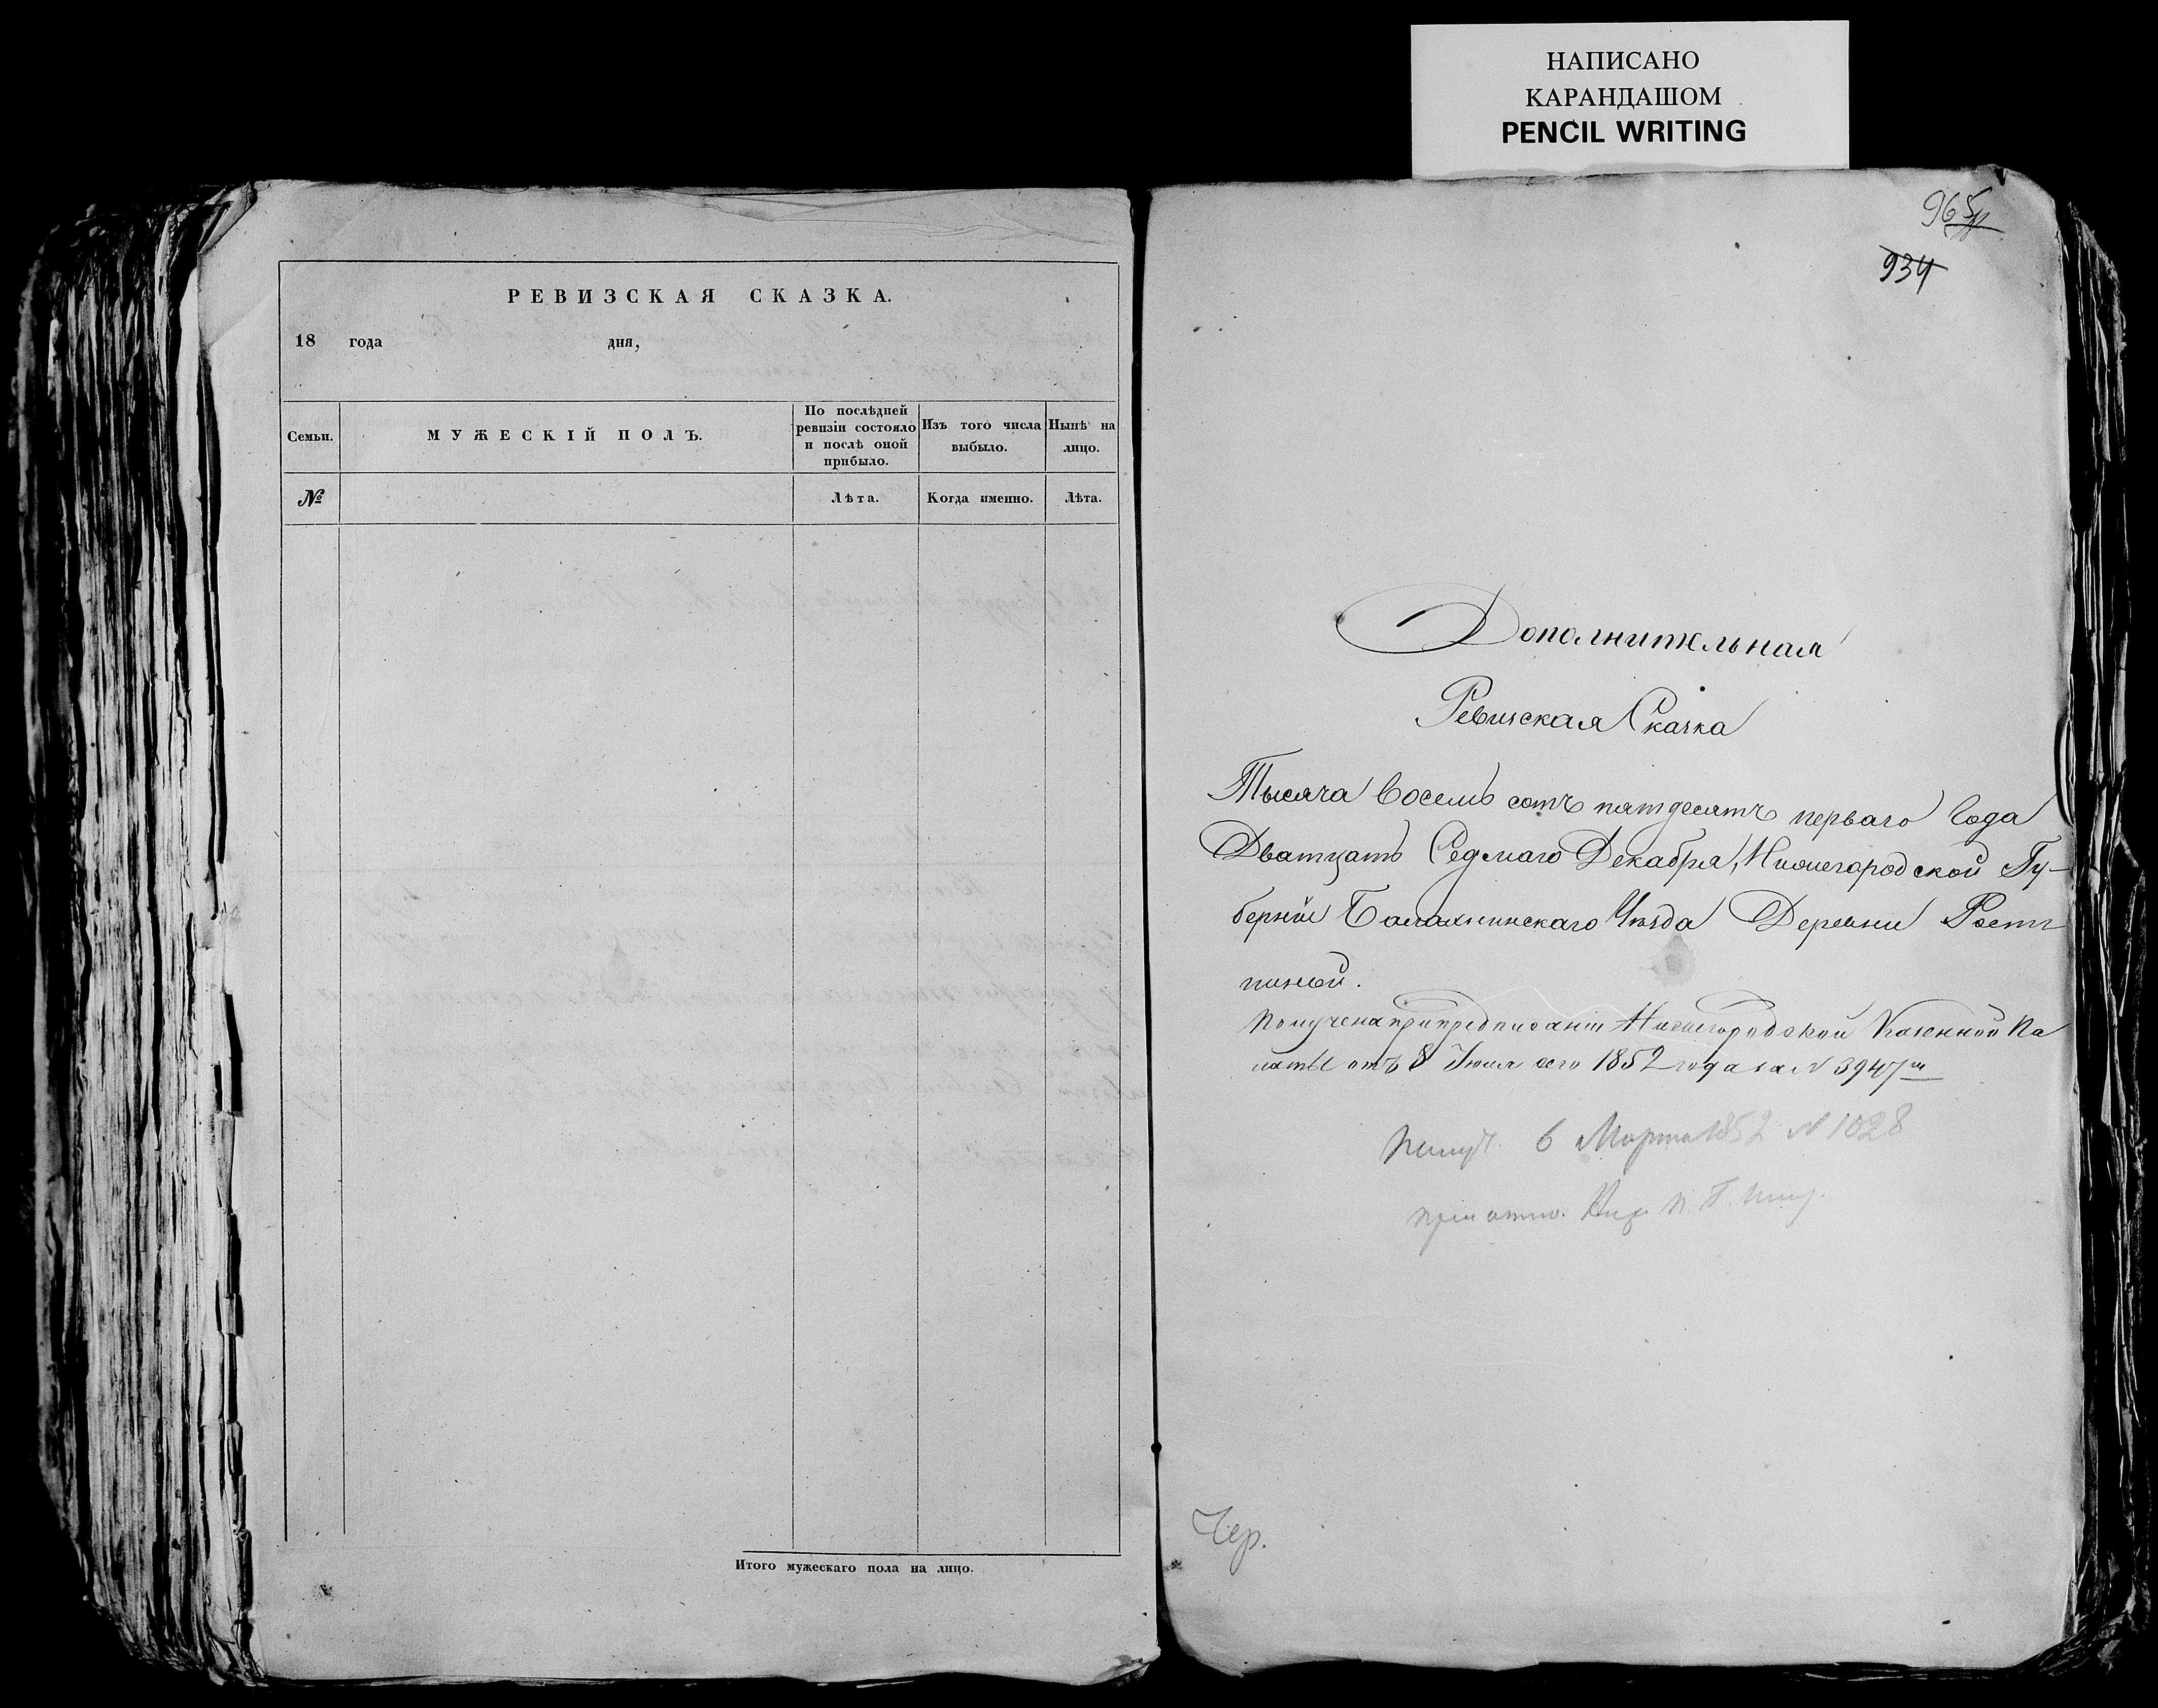 НАПИСАНО
КАРАНДАШОМ
PENCIL WRITING
РЕВИЗСКАЯ СКАЗКА.
18 года дня,
Семьи.
МУЖЕСКІЙ ПОЛЪ.
По послѣдней
ревизіи состояло
и послѣ оной
прибыло.
Изъ того числа
выбыло.
Нынѣ на
лицо.
№
Лѣта.
Когда именно.
Лѣта.
Итого мужескаго пола на лицо.
965
934
Дополнительная
Ревизская Сказка
Тысяча восемь сотъ пятдесятъ перваго Года
Дватцать Седмаго Декабря, Нижегородской Гу-
берніи Балахнинскаго Уѣзда Деревни
Получена при предписаніи Нижегородской Казенной Па
латы отъ 8 Іюля сего 1852 года за N 3947
6 Марта 1852 N 1028
Чер.